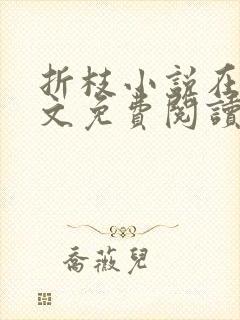 折枝小说在
文免費閱讀
喬薇兒